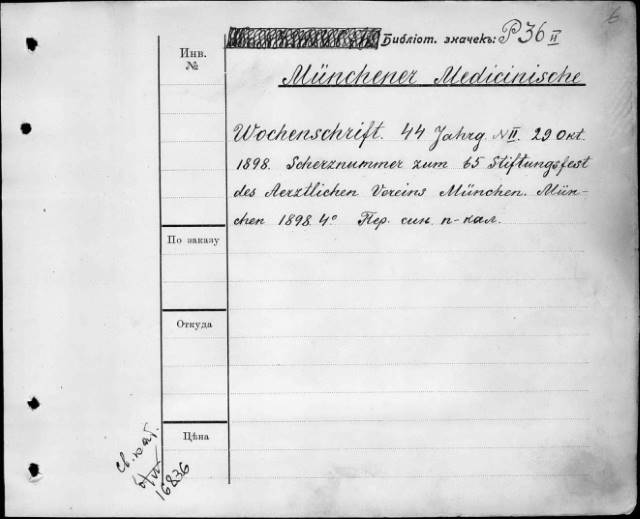 6
Библіот. значекъ: P 36 II
Инв. №
Münchener Medicinische
Wochenschrift. 44 Jahrg. N II. 29 Окт.
1898. Scherznummer zum 65 Stiftungsfest
des Aerztlichen Vereins München. Mün-
chen 1898 4° Пер. син. п-кал.
По заказу
Откуда
Цѣна
св. кат.
16836